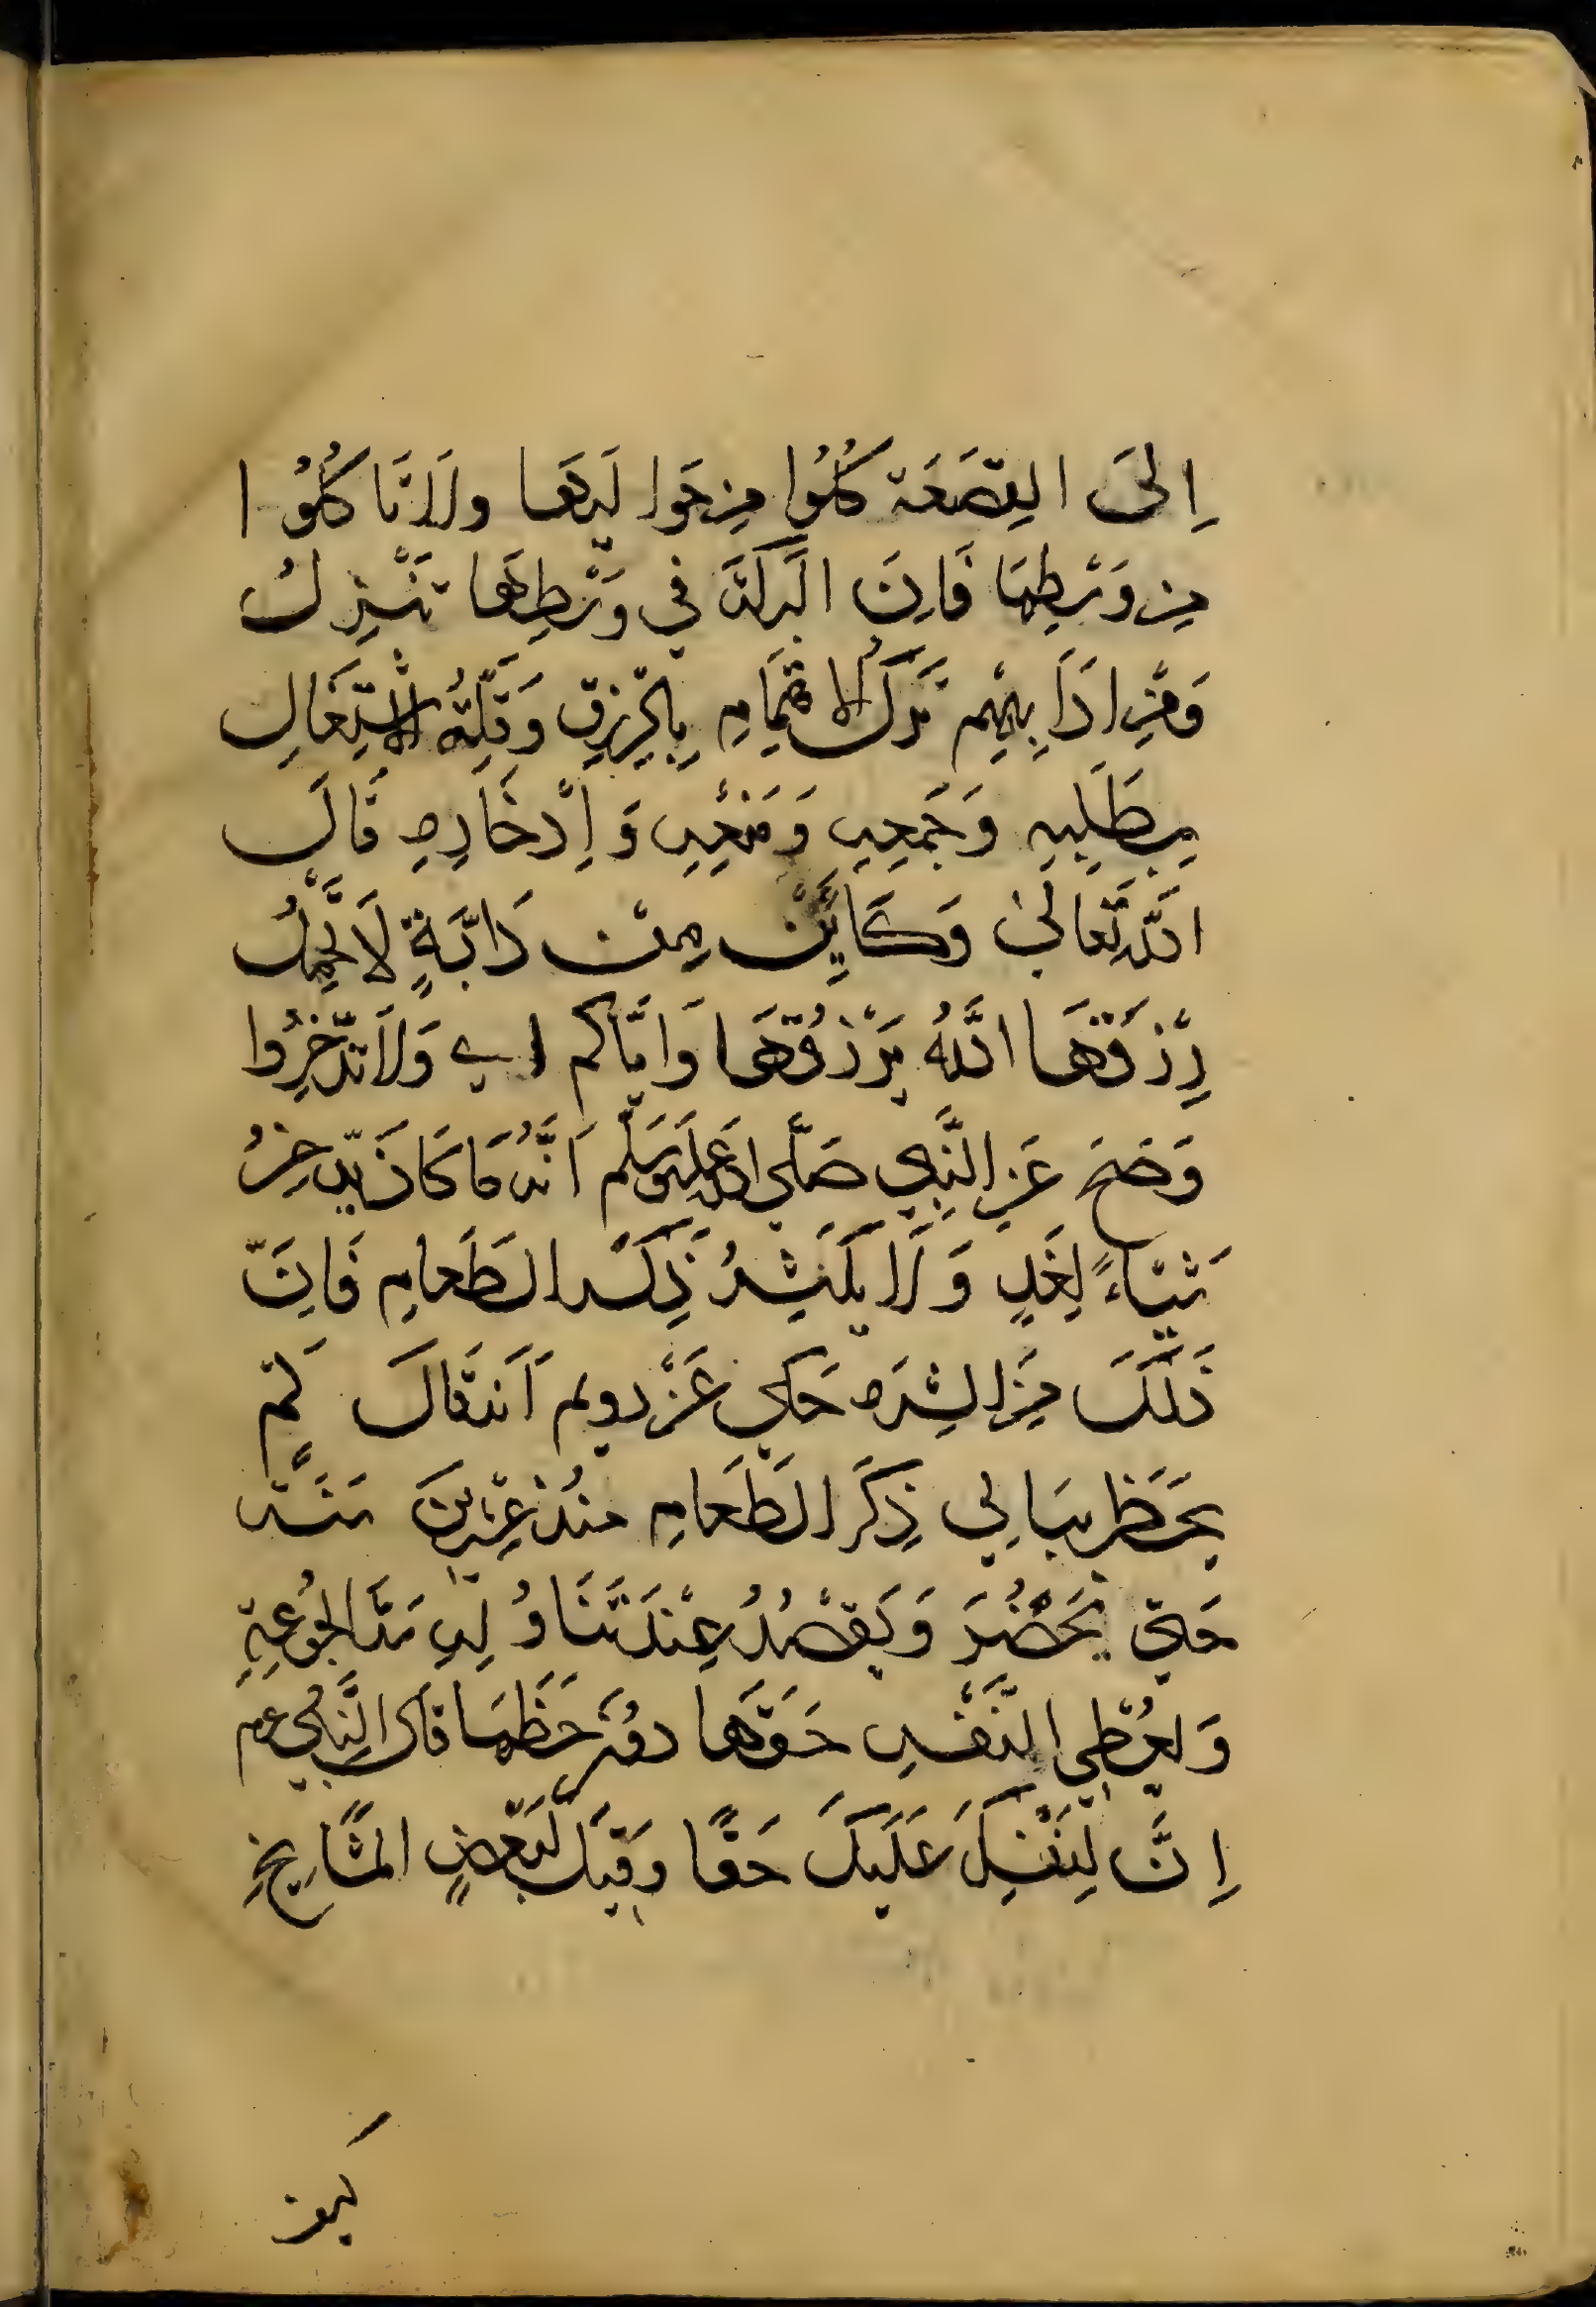 اِلىَ القِصَعَة كُلُوا مِن حَوَا ليَهَا ولَا تَا كُلُوُ ا
مِن وَسْطِهَا فَاِنَ البَركَةَ فِي وَسْطِهَا تَنْزِلُ
وَمِنْ ادَابِهِم تَركُ الاهْتِمَامِ بِالرِّزقِ وَقِلَّةُ الاشتِغَالِ
بِطَلَبِهِ وَجَمعِهِ وَمَنْعِهِ وَاِدْخَارِهِ قَالَ
اللّٰه تَعَالىٰ وَكَاَيِّنْ مِنْ دَابَّةٍ لَا تَحمِلُ
رِزْقَهَا اللّٰهُ يَرْزُقُهَا وَايَّاكم اي وَلَا تدّخِرُوا
وَصَحَ عَنِ النَّبِي صَلَّى الله عَلَيه وَسَلَّم اَنَّهُ مَا كَانَ يدّخِرُ
شَيْاءً لِغَدٍ وَلَا يُكَثِرُ ذِكرَ الطَعامِ فَاِنَّ
ذَلَكَ مِنَ الشِرَه حَكي عَنْ رويم اَنه قَالَ لَم
يخَطَر ببَالي ذِكرَ الطَعَامِ مُنذُ عِشرِينَ سَنَة
حَتي يَحَضُرَ وَيَقصُدُ عِنْدَ تَنَاوُلِهِ سَدَّ الجُوعَةِ
وَيُعْطِي النَّفسَ حَقَهَا دوُنَ حَظِّهَا قَالَ النَّبِي عم
اِنَّ لِنَفْسِكَ عَلَيكَ حَقًا وَقيلَ لِبَعْضِ المشَّايِخِ
كيف